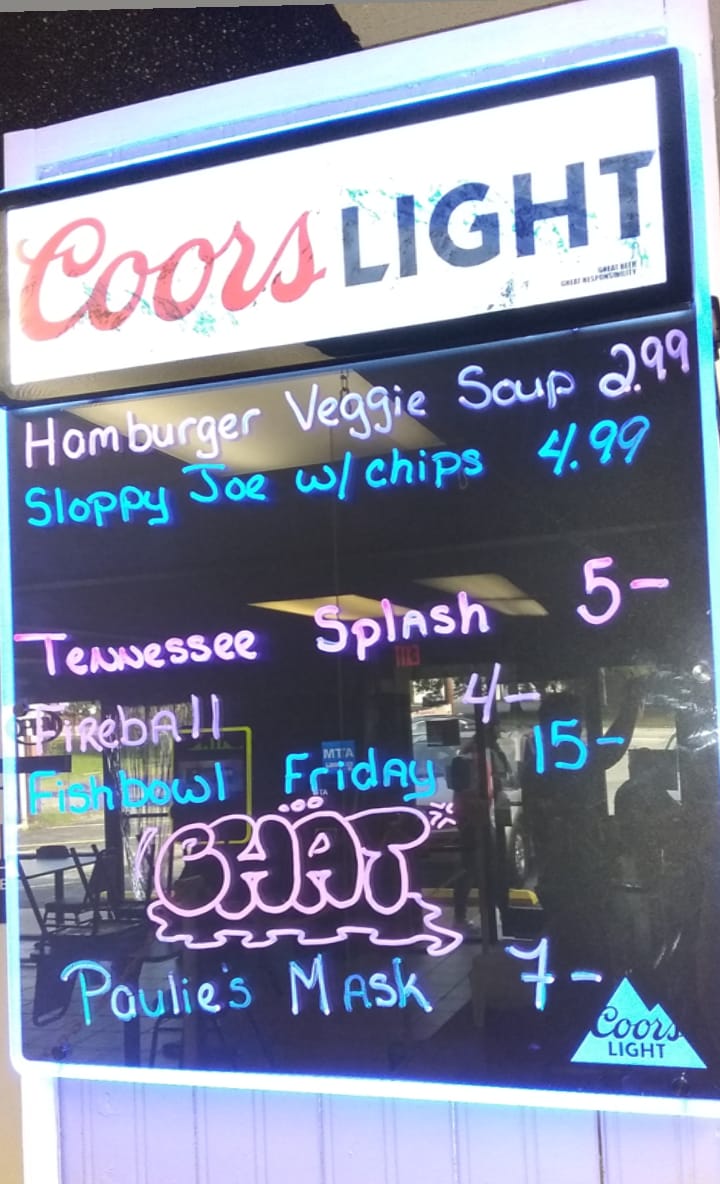 Coors LIGHT
GREAT BEER
GREAT RESPONSIBILITY
Hamburger Veggie Soup 2.99
Sloppy Joe w/ chips 4.99
Tennessee Splash 5-
113
Fireball 4-
MTA
Fishbowl Friday 15-
CHAT
Paulie's Mask 7-
Coors
LIGHT